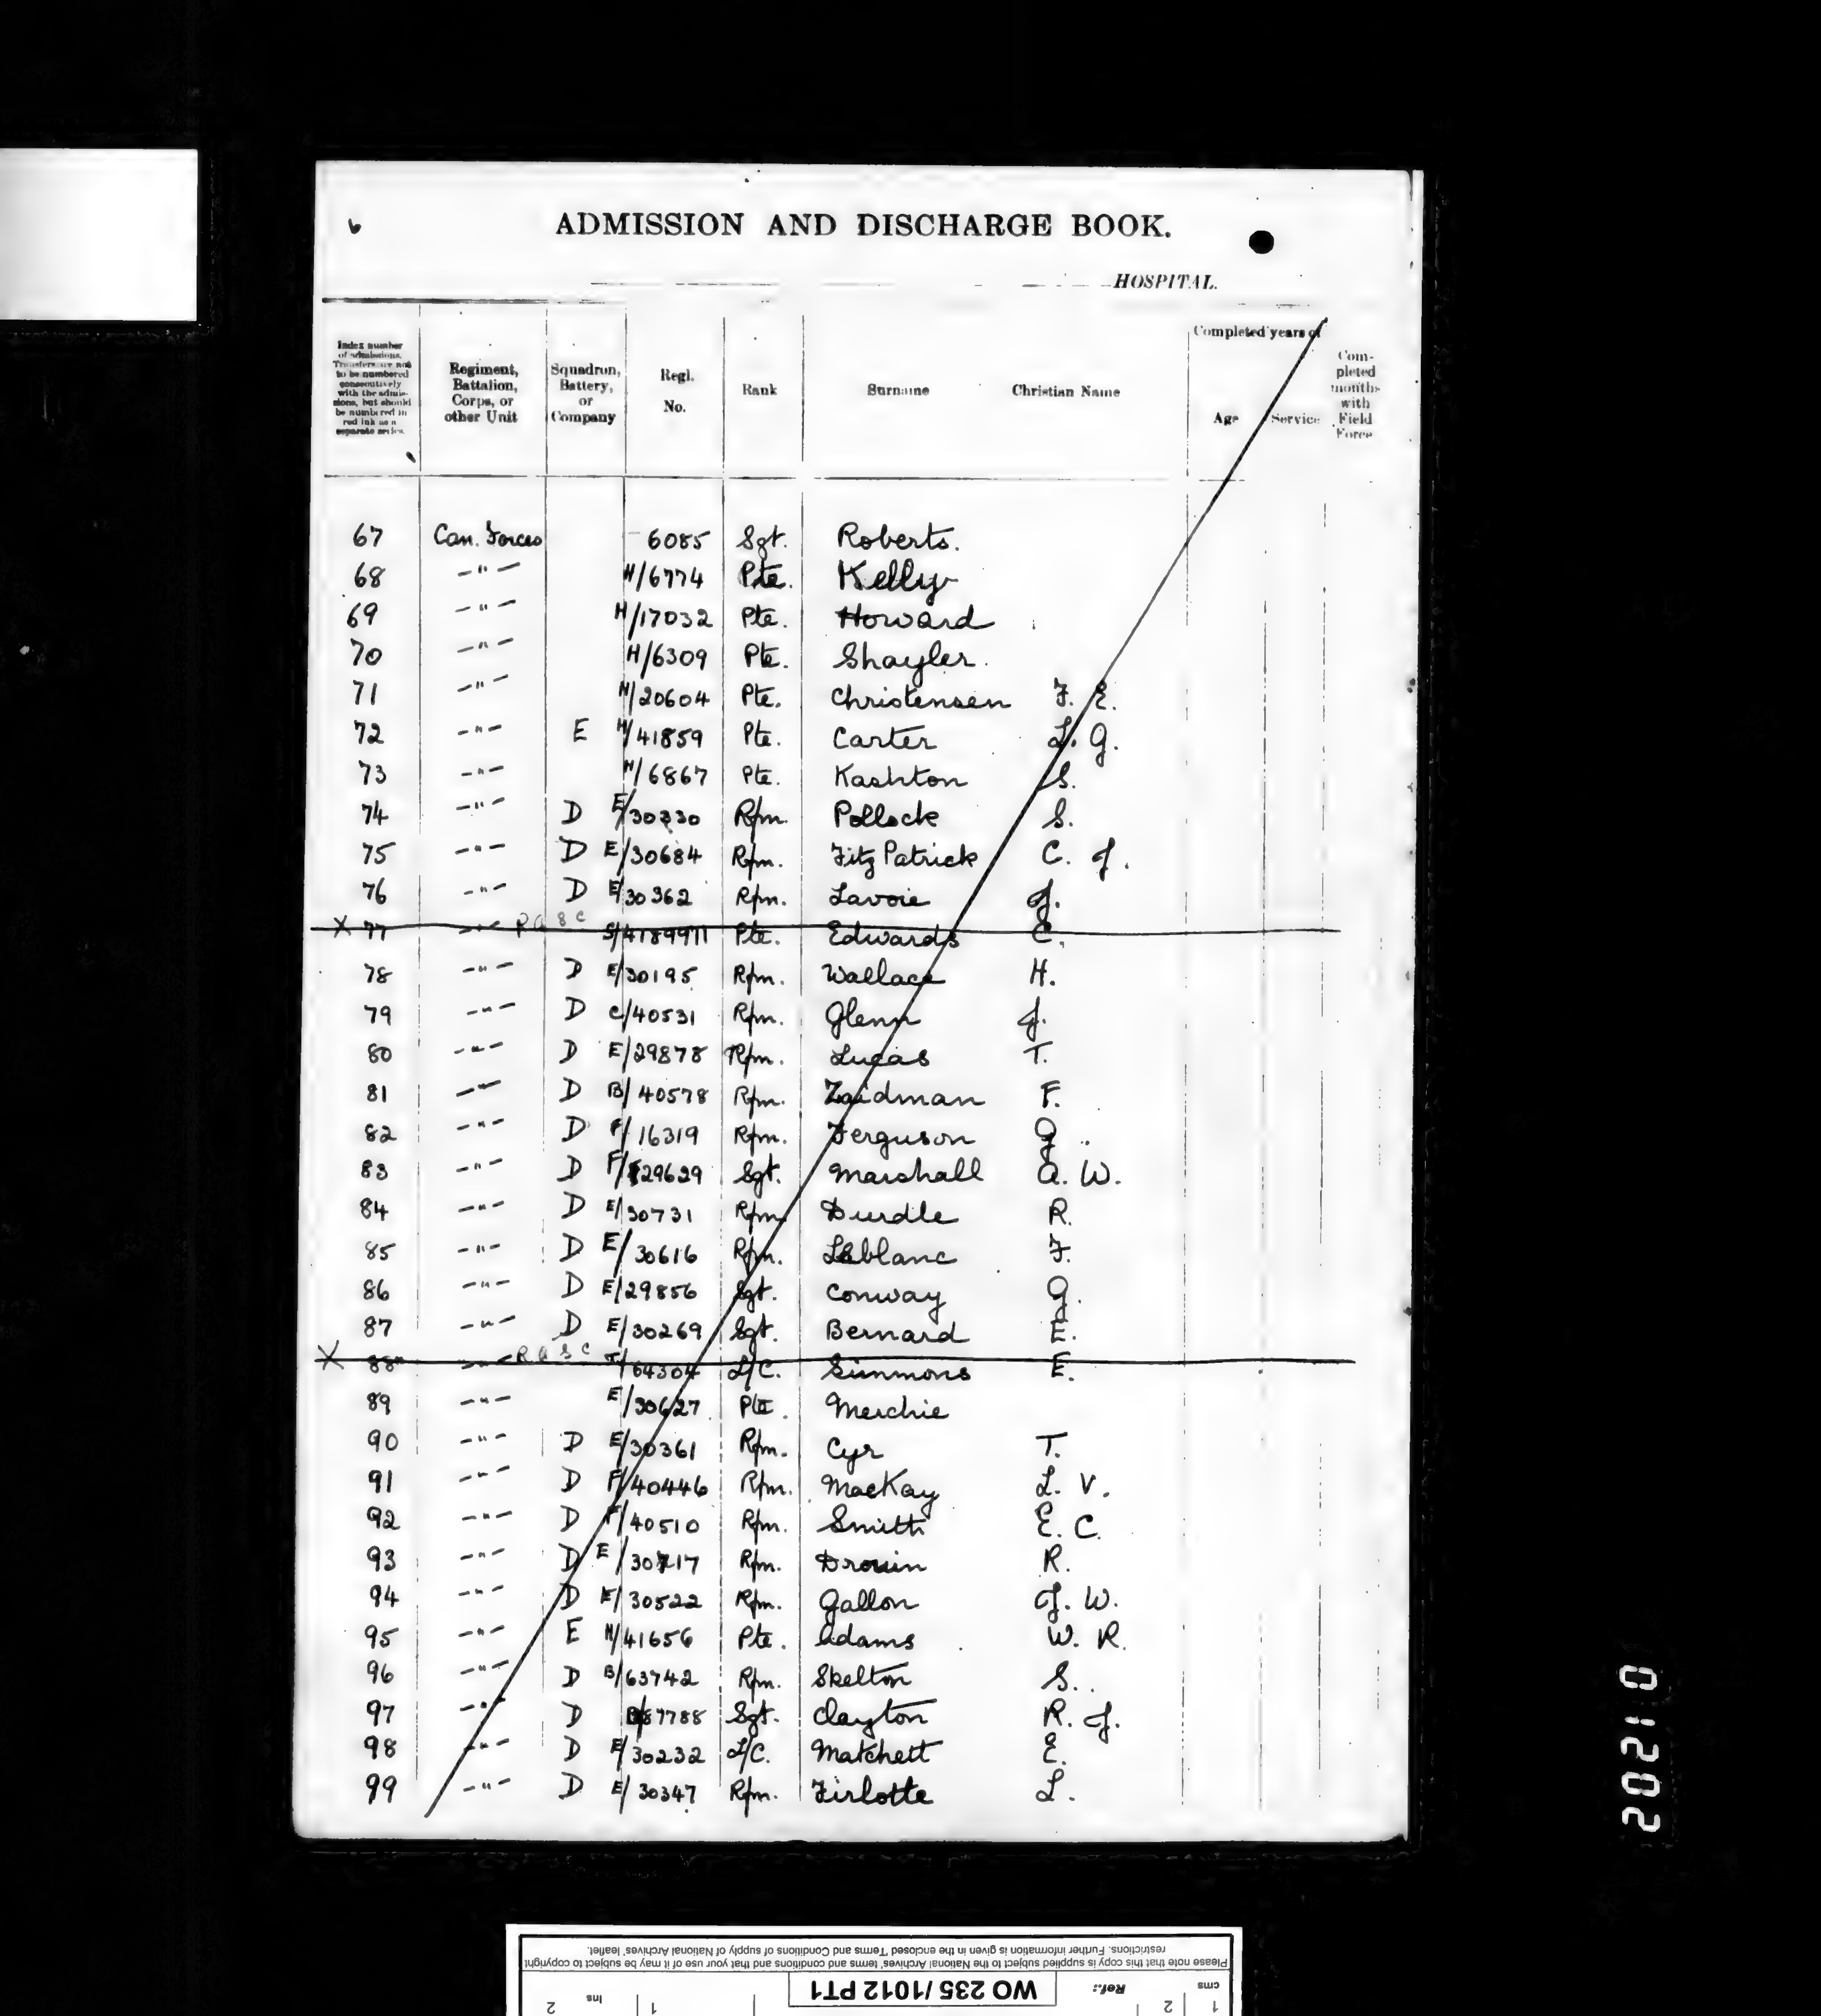 6
ADMISSION AND DISCHARGE BOOK.
HOSPITAL.
Index number of admissions. Transfers are not to be numbered consecutively with the admissions, but should be numbered in red ink as a separate series.
Regiment, Battalion, Corps, or other Unit
Squadron, Battery, or Company
Regl. No.
Rank
Surname
Christian Name
Completed years of
Age
Service
Completed months with Field Force
67 Can. Forces 6085 Sgt. Roberts.
68 -"- H/6774 Pte. Kelly
69 -"- H/17032 Pte. Howard
70 -"- H/6309 Pte. Shayler.
71 -"- H/20604 Pte. Christensen F. E.
72 -"- E H/41859 Pte. Carter L. G.
73 -"- H/6867 Pte. Kashton S.
74 -"- D E/30330 Rfm. Pollock S.
75 -"- D E/30684 Rfm. FitzPatrick C. J.
76 -"- D E/30362 Rfm. Lavoie J.
X 77 -"- RASC S/4189971 Pte. Edwards C.
78 -"- D E/30195 Rfm. Wallace H.
79 -"- D C/40531 Rfm. Glenn J.
80 -"- D E/29878 Rfm. Lucas T.
81 -"- D B/40578 Rfm. Zaidman F.
82 -"- D F/16319 Rfm. Ferguson G.
83 -"- D F/29629 Sgt. Marshall A. W.
84 -"- D E/30731 Rfm. Durdle R.
85 -"- D E/30616 Rfm. Leblanc F.
86 -"- D E/29856 Sgt. Conway G.
87 -"- D E/30269 Sgt. Bernard E.
X 88 -"- RASC T/64304 L/C. Simmons E.
89 -"- E/30627 Pte. Merchie
90 -"- D E/30361 Rfm. Cyr T.
91 -"- D F/40446 Rfm. MacKay L. V.
92 -"- D F/40510 Rfm. Smith E. C.
93 -"- D E/30717 Rfm. Drouin R.
94 -"- D E/30522 Rfm. Gallon J. W.
95 -"- E H/41656 Pte. Adams W. R.
96 -"- D B/63742 Rfm. Skelton S.
97 -"- D B/87788 Sgt. Clayton R. J.
98 -"- D E/30232 L/C. Matchett E.
99 -"- D E/30347 Rfm. Firlotte L.
202110
Please note that this copy is supplied subject to the National Archives' terms and conditions and that your use of it may be subject to copyright
restrictions. Further information is given in the enclosed 'Terms and Conditions of supply of National Archives' leaflet.
cms 1 2
Ref.: WO 235/1012 PT1
Ins 1 2